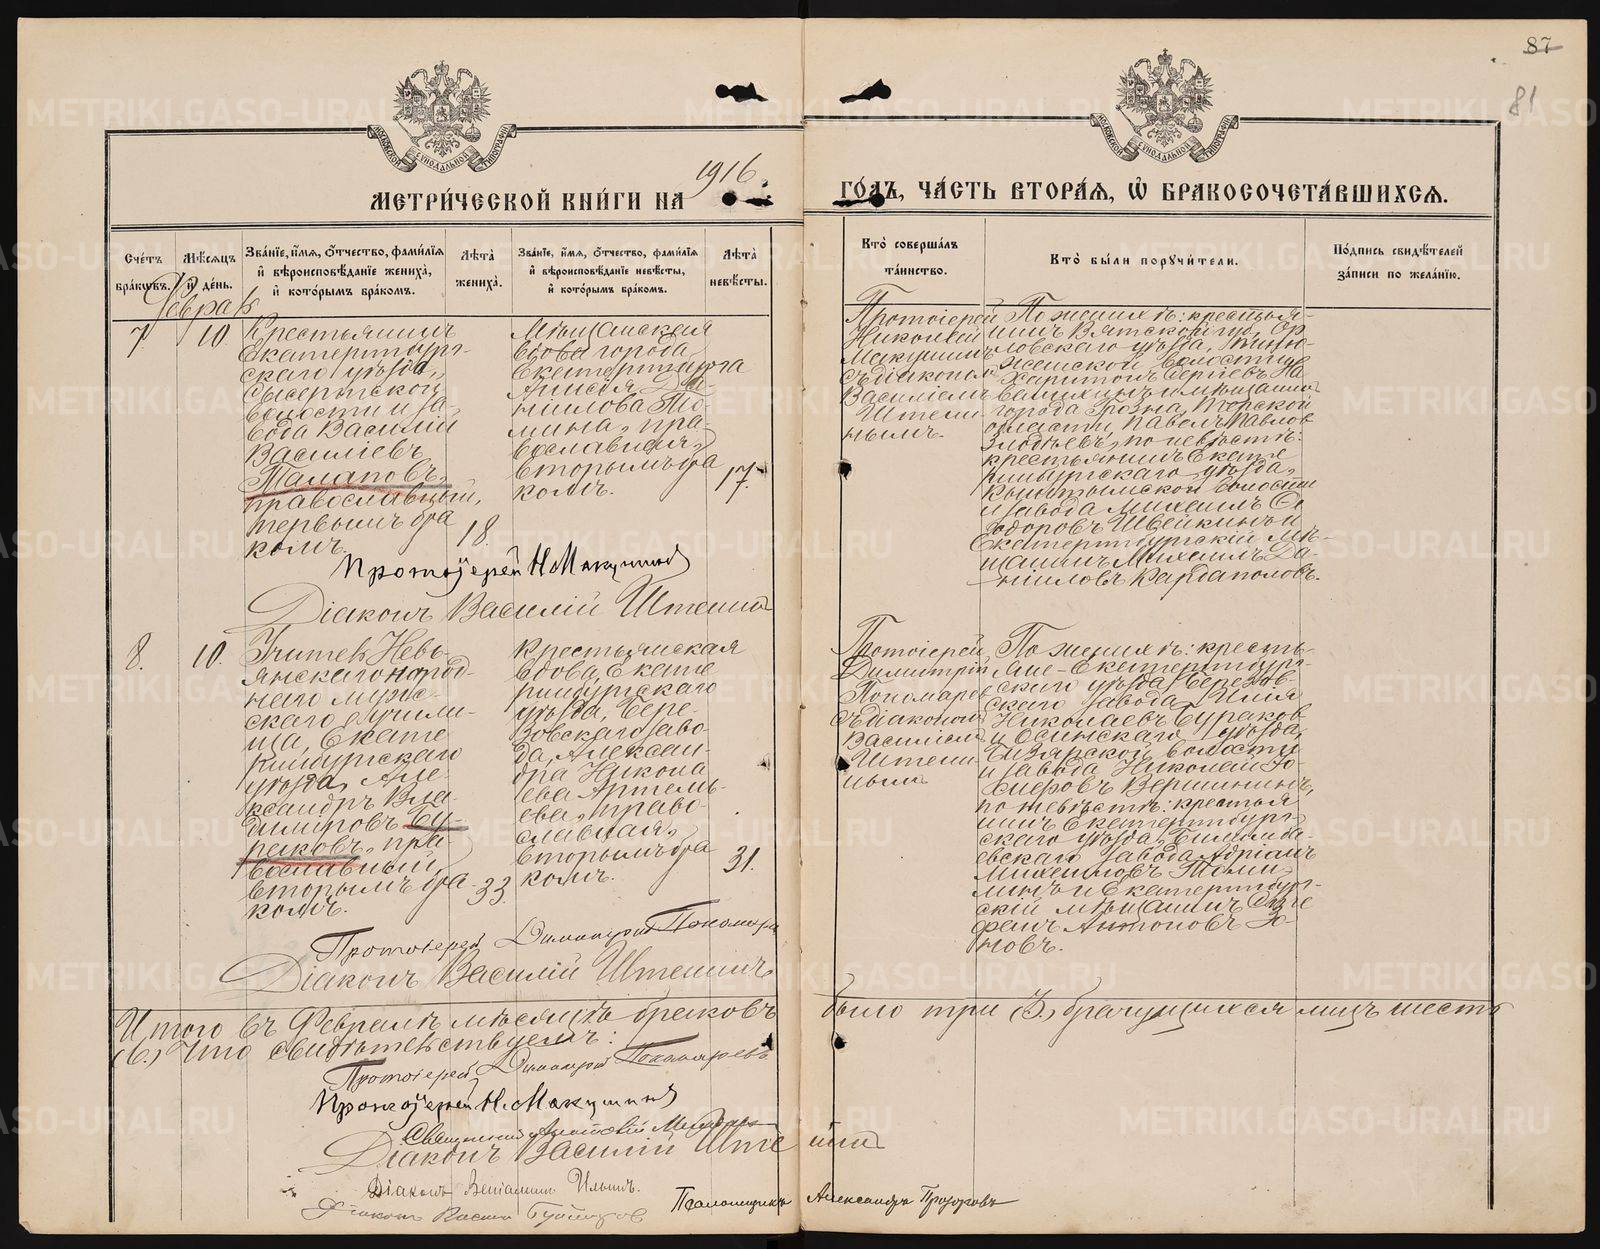 87
81
МЕТРИ́ЧЕСКОЙ КНИ́ГИ НА 1916 ГО́ДЪ, ЧА́СТЬ ВТОРА́Ѧ, Ѡ҆ БРАКОСОЧЕТА́ВШИХСѦ.
Сче́тъ бра́кѡвъ.
Мѣ́сѧцъ и҆ де́нь.
Зва́нїе, и҆́мѧ, ѻ҆́тчество, фами́лїѧ и҆ вѣроисповѣ́данїе жениха̀, и҆ кото́рымъ бра́комъ.
Лѣ́та жениха̀.
Зва́нїе, и҆́мѧ, ѻ҆́тчество, фами́лїѧ и҆ вѣроисповѣ́данїе невѣ́сты, и҆ кото́рымъ бра́комъ.
Лѣ́та невѣ́сты.
Кто̀ соверша́лъ та́инство.
Кто̀ бы́ли порꙋчи́тели.
По́дпись свидѣ́телей за́писи по жела́нїю.
Февраль
7
10.
Крестьянинъ
Екатеринбург-
скаго уѣзда,
Сысертской
волости и за-
вода Василій
Василіевъ
Талаповъ,
православный,
первымъ бра
комъ.
18.
Мѣщанская
вдова города
Екатеринбурга
Анисія Да-
ніилова То-
мина, пра-
вославная,
вторымъ бра
комъ.
17.
Протоіерей
Николай
Макушинъ
съ діакономъ
Василіемъ
Штени-
нымъ.
По женихѣ: крестья-
нинъ Вятской губ. Ор-
ловскаго уѣзда,
волости
Харитонъ Сергіевъ
и мѣщанинъ
города Грозна, Терской
области Павелъ Павлов
Злодѣевъ, по невѣстѣ:
крестьянинъ Екате
ринбургскаго уѣзда,
Кыштымской волости
и завода Михаилъ Ѳе
одоровъ Швейкинъ и
Екатеринбургскій мѣ-
щанинъ Михаилъ Да-
ніиловъ Кардаполовъ.
Протоіерей Н. Макушинъ
Діаконъ Василій Штенинъ
8.
10.
Учитель Невь-
янскаго народ-
наго муж-
скаго училища
ща, Екате
ринбургскаго
уѣзда, Але-
ксандръ Вла-
диміровъ Бу-
раковъ, пра-
вославный,
вторымъ бра-
комъ.
33.
Крестьянская
вдова, Екате
ринбургскаго
уѣзда, Бере-
зовскаго заво-
да, Алексан-
дра Никола
ева Артемь-
ева, право-
славная,
вторымъ бра
комъ.
31.
Протоіерей
Димитрій
Пономаревъ
съ діакономъ
Василіемъ
Штени-
нымъ
По женихѣ: кресть-
яне - Екатеринбург-
скаго уѣзда Березов-
скаго завода, Илія
Николаевъ Бураков
и Осинскаго уѣзда,
Бизярской волости
и завода Николай Ѳо-
Вершининъ,
по невѣстѣ: крестья
нинъ Екатеринбург-
скаго уѣзда, Билимба-
евскаго завода Адріанъ
Михаиловъ Томи-
линъ и Екатеринбург-
скій мѣщанинъ Сте
фанъ Антоновъ Зо-
новъ.
Протоіерей Димитрій Пономаревъ
Діаконъ Василій Штенинъ
Итого въ Февралѣ мѣсяцѣ браковъ было три (3.) брачущихся лицъ шесть
(6.) Что свидѣтельствуемъ:
Протоіерей Димитрій Пономаревъ
Протоіерей Н. Макушинъ
Священникъ
Діаконъ Василій Штенинъ
Діаконъ Веніаминъ Ильинъ.
Діаконъ
Псаломщикъ Александръ Прозоровъ